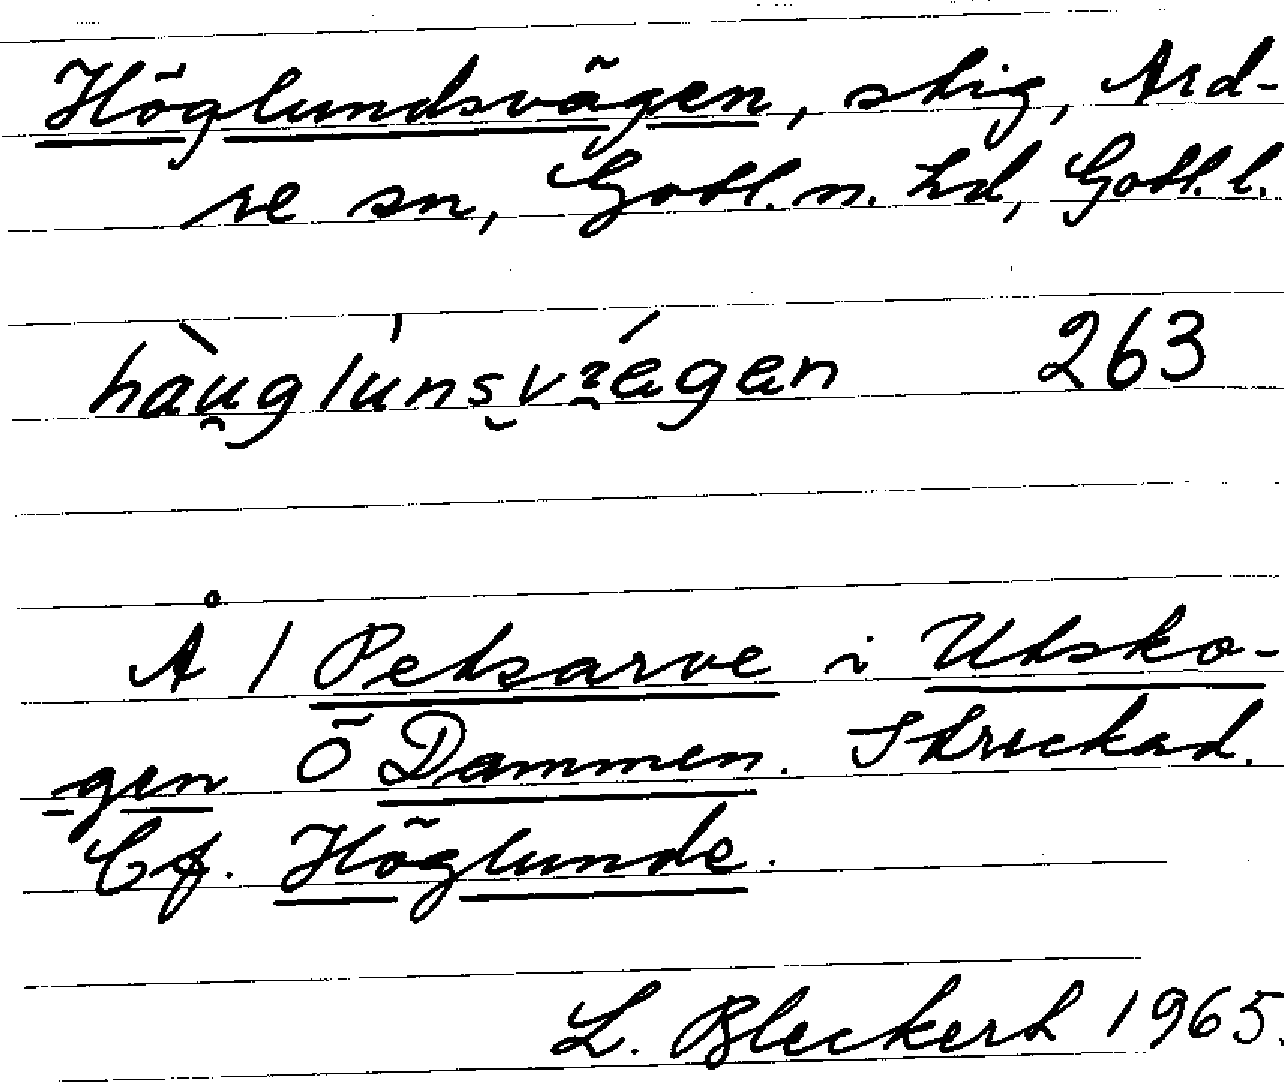 Höglundsvägen, stig, Ard-
re sn, Gotl. n. hd, Gotl. l.
263
Å 1 Petsarve i Utsko-
gen Ö Dammen. Streckad.
Cf. Höglunde.
L. Bleckert 1965.